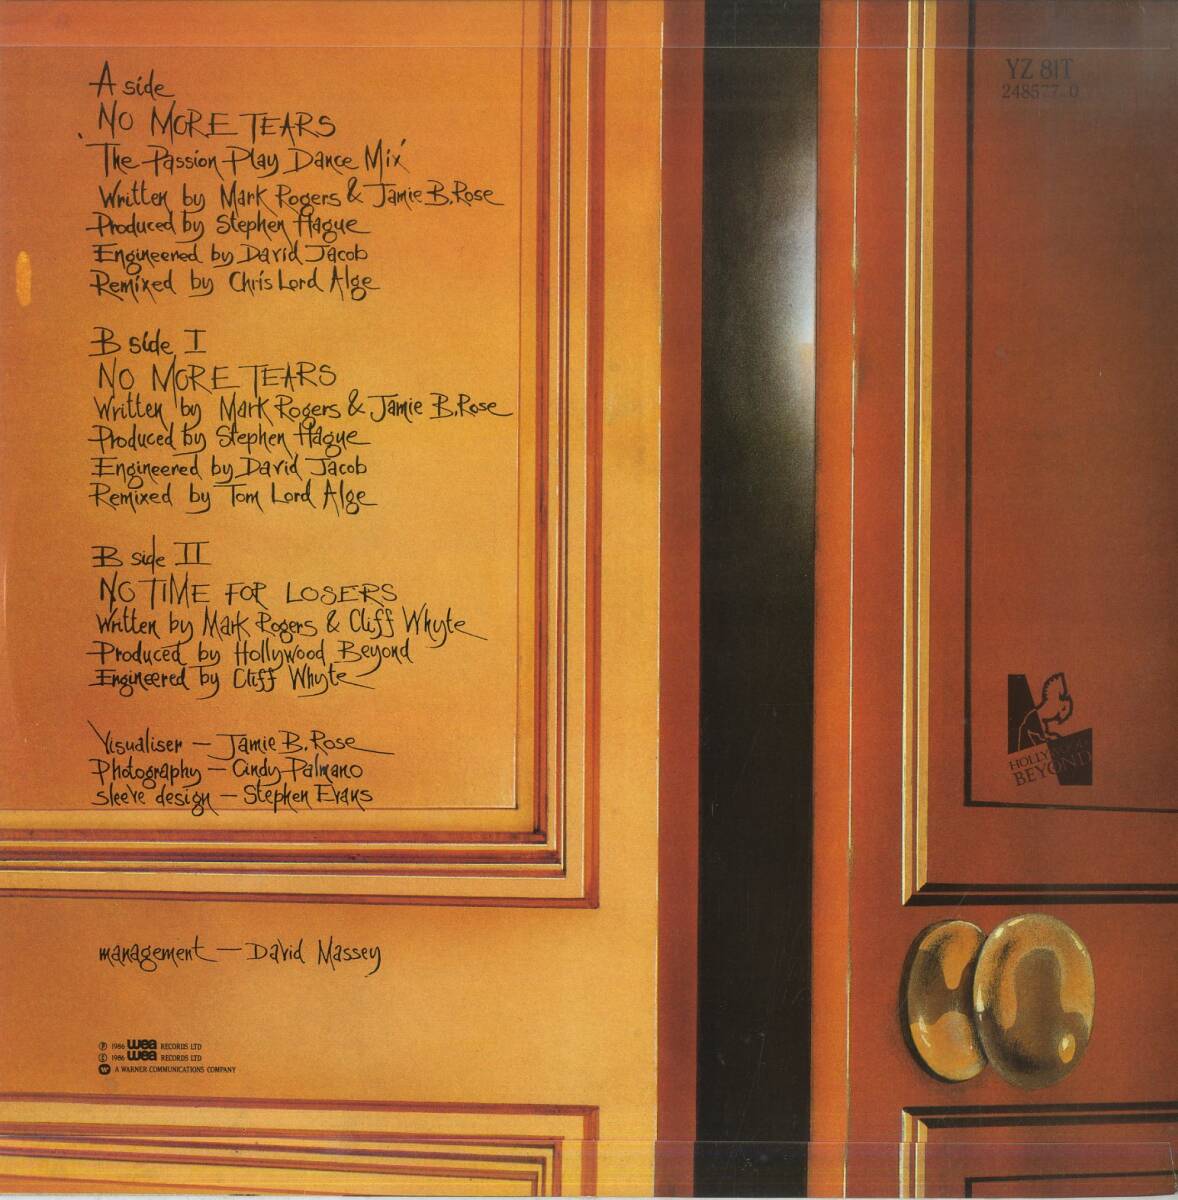 A side
NO MORE TEARS
'The Passion Play Dance Mix'
Written by Mark Rogers & Jamie B. Rose
Produced by Stephen Hague
Engineered by David Jacob
Remixed by Chris Lord Alge
B side I
NO MORE TEARS
Written by Mark Rogers & Jamie B. Rose
Produced by Stephen Hague
Engineered by David Jacob
Remixed by Tom Lord Alge
B side II
NO TIME FOR LOSERS
Written by Mark Rogers & Cliff Whyte
Produced by Hollywood Beyond
Engineered by Cliff Whyte
Visualiser – Jamie B. Rose
Photography – Cindy Palmano
Sleeve design – Stephen Evans
management – David Massey
℗ 1986 wea RECORDS LTD
© 1986 wea RECORDS LTD
W A WARNER COMMUNICATIONS COMPANY
YZ 81T
248577-0
HOLLYWOOD
BEYOND